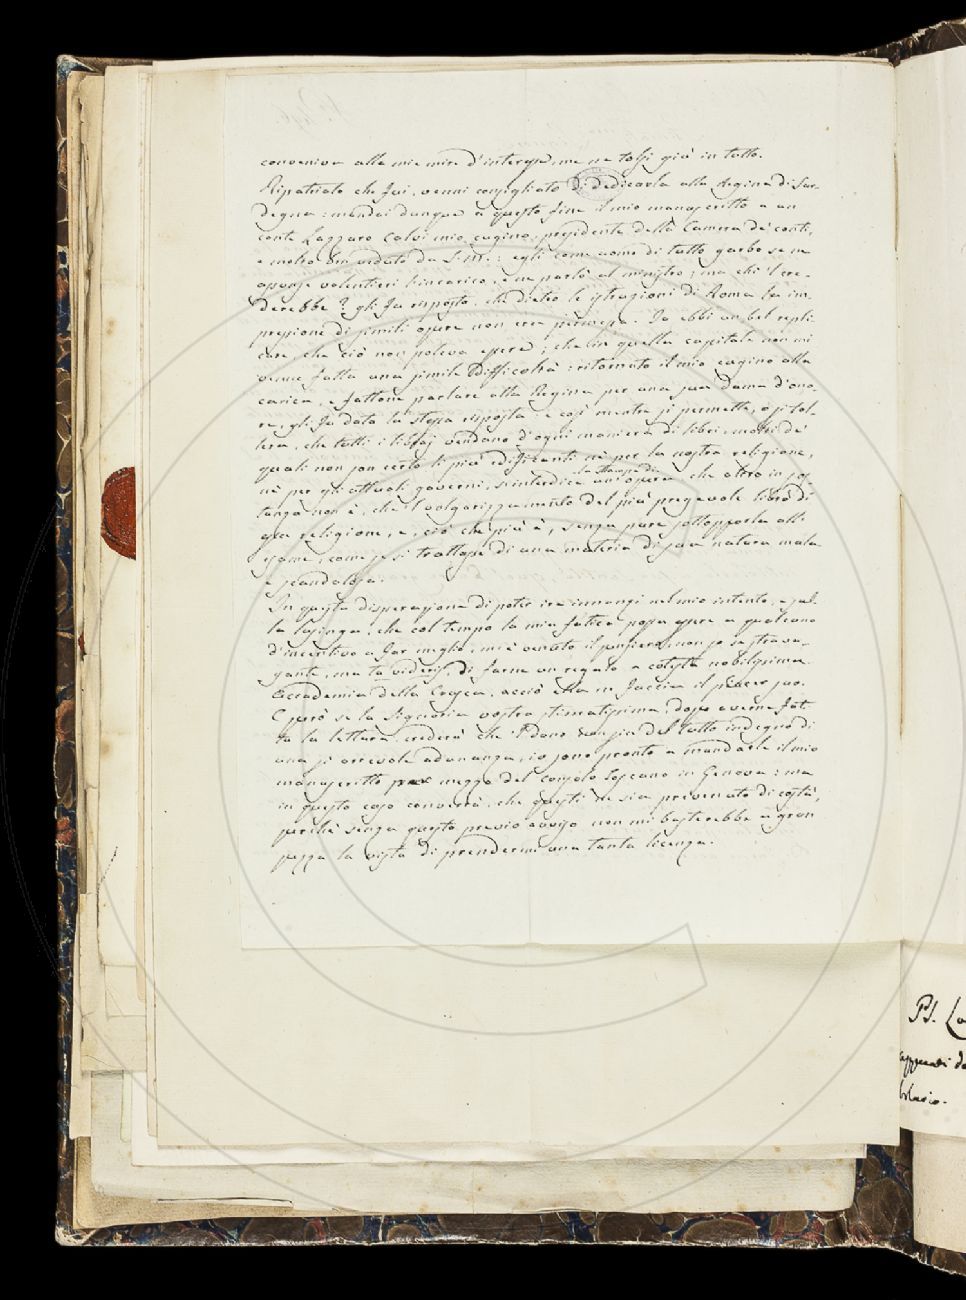 conveniva alle mie mire d'interesse, me ne tolsi giù in tutto.
Ripatriato che fui, venni consigliato di dedicarla alla Regina di Sar-
degna: mandai dunque a questo fine il mio manoscritto a un
conte Lazzaro Calvi mio cugino, presidente della Camera de' conti,
e molto ben veduto da S. M.: egli come uomo di tutto garbo se ne
assunse volentieri l'incarico, e ne parlò al ministro; ma chi 'l cre-
derebbe? gli fu risposto, che dietro le istruzioni di Roma la im
pressione di simili opere non era permessa. Io ebbi un bel repli
care, che ciò non poteva essere, che in quella capitale non mi
venne fatta una simile difficoltà: ritornato il mio cugino alla
carica, e fattone parlare alla Regina per una sua dama d'ono
re, gli fu data la stessa risposta, e così mentre si permette, o si tol-
lera, che tutti i libraj vendano d'ogni maniera di libri, molti de'
quali non son certo li più edificanti nè per la nostra religione,
nè per gli attuali governi, s'interdice la stampa di un'opera, che altro in sos
tanza non è, che 'l volgarizzamento del più pregevole libro di
essa religione, e, ciò che più è, senza pure sottopporla all'
esame, come se si trattasse di una materia di sua natura mala
e scandalosa.
In questa disperazione di poter ire innanzi nel mio intento, e sul
la lusinga, che col tempo la mia fatica possa essere a qualcuno
d'incentivo a far meglio, mi è venuto il pensiero, non so se strava-
gante, ma tu videris, di farne un regalo a cotesta nobilissima
Accademia della Crusca, acciò ella ne faccia il piacer suo.
E però se la Signoria vostra stimatissima, dopo averne fat-
ta la lettura, crederà che 'l dono non sia del tutto indegno di
una sì orrevole adunanza, io sono pronto a mandarle il mio
manoscritto per mezzo del consolo Toscano in Genova: ma
in questo caso converrà, che questi ne sia prevenuto di costà,
perchè senza questo previo avviso non mi basterebbe a gran
pezza la vista di prendermi una tanta licenza.
PS. La